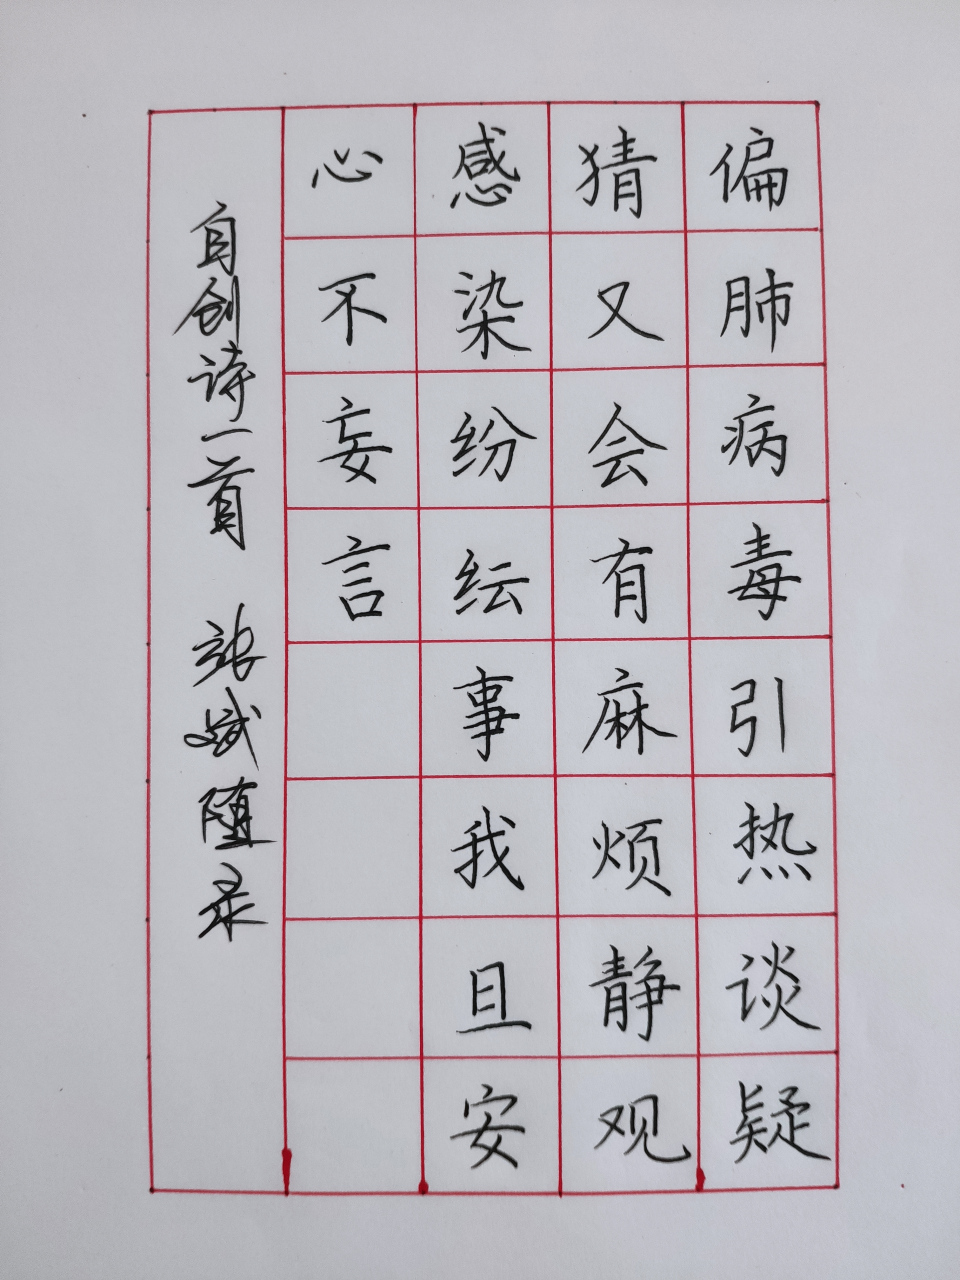 偏肺病毒引热谈疑
猜又会有麻烦静观
感染纷纭事我且安
心不妄言
自创诗一首 张斌随录